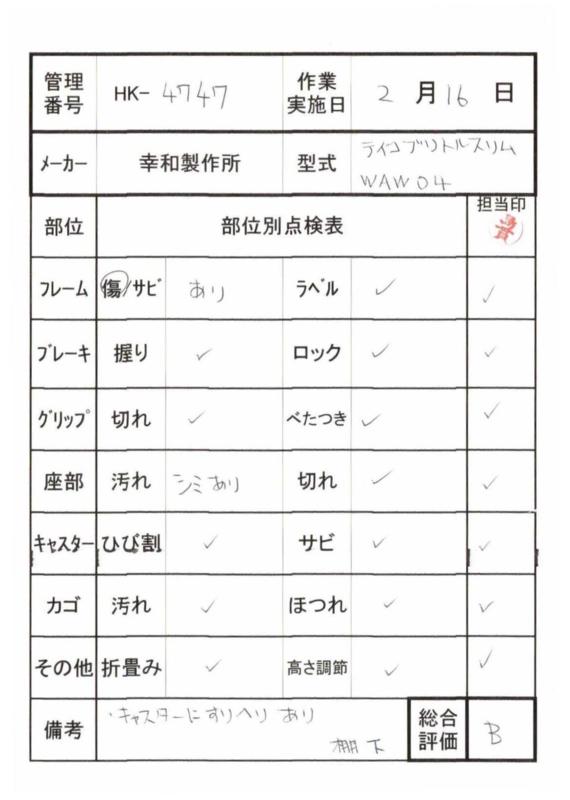 管理番号 HK- 4747 作業実施日 2 月 16 日
メーカー 幸和製作所 型式 テイコブリトルスリム
WAW04
部位 部位別点検表 担当印
フレーム 傷/サビ あり ラベル ✓ ✓
ブレーキ 握り ✓ ロック ✓ ✓
グリップ 切れ ✓ べたつき ✓ ✓
座部 汚れ シミあり 切れ ✓ ✓
キャスター ひび割 ✓ サビ ✓ ✓
カゴ 汚れ ✓ ほつれ ✓ ✓
その他 折畳み ✓ 高さ調節 ✓ ✓
備考 ・キャスターにすりヘリ あり
棚下
総合評価 B